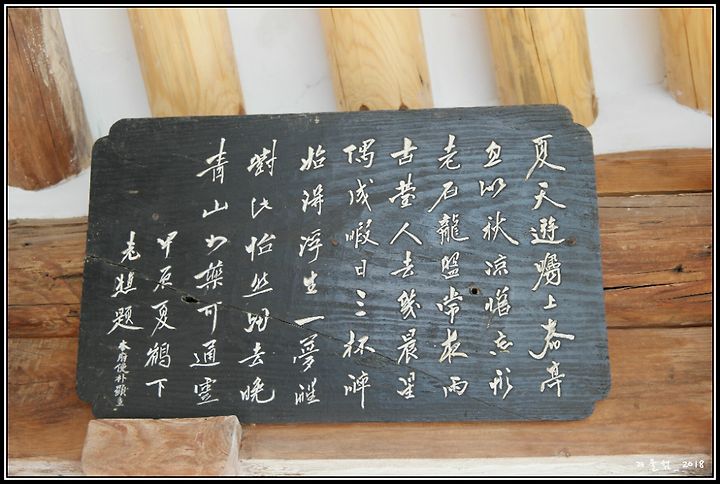 夏天遊躅上春亭
且以秋凉憺忘形
老石龍盤常夜雨
古臺人去幾晨星
偶成暇日三杯醉
始得浮生一夢醒
對此怡然歸去晚
青山如業可通靈
甲辰夏鶴下
老樵題
本府使朴顯
2018